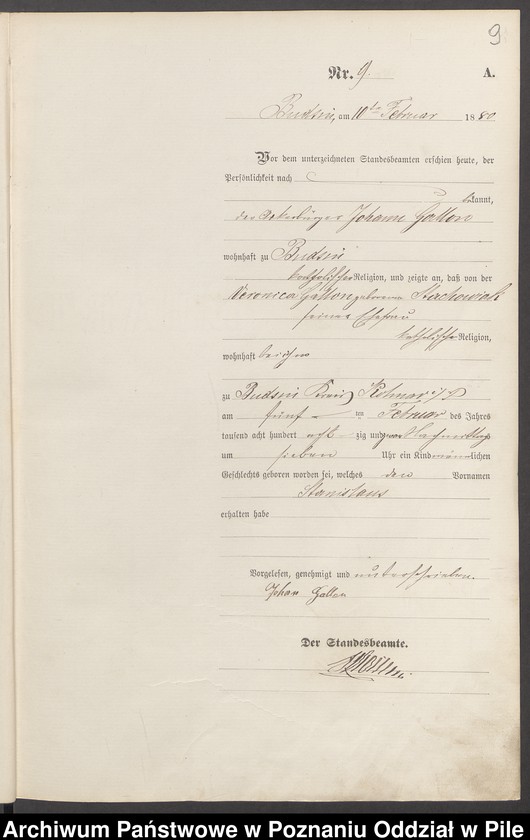 9
Nr. 9. A.
Budsin, am 10ten Februar 1880
Vor dem unterzeichneten Standesbeamten erschien heute, der
Persönlichkeit nach
bekannt,
der Ackerbürger Johann Gallon
wohnhaft zu Budsin
katholischer Religion, und zeigte an, daß von der
Veronica Gallon geborene Stachowiak
seiner Ehefrau
katholischer Religion,
wohnhaft bei ihm
zu Budsin Kreis Kolmar i/P
am fünf ten Februar des Jahres
tausend acht hundert acht zig und Nachmittags
um sieben Uhr ein Kind männlichen
Geschlechts geboren worden sei, welches den Vornamen
Stanislaus
erhalten habe
Vorgelesen, genehmigt und unterschrieben.
Johan Gallon
Der Standesbeamte.
Archiwum Państwowe w Poznaniu Oddział w Pile